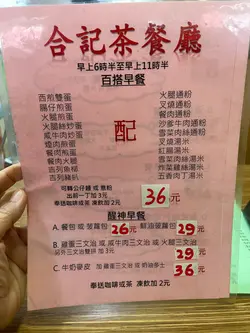 合記茶餐廳
早上6時半至早上11時半
百搭早餐
西煎雙蛋
腸仔煎蛋
火腿煎蛋
火腿絲炒蛋
咸牛肉炒蛋
煙肉煎蛋
餐肉煎蛋
餐肉火腿
吉列魚柳
吉列豬扒
配
火腿通粉
叉燒通粉
餐肉通粉
沙爹牛肉通粉
雪菜肉絲通粉
叉燒湯米
紅腸湯米
雪菜肉絲湯米
炸菜肉絲湯米
五香肉丁湯米
可轉公仔麵 或 意粉
出前一丁 加 3元
奉送咖啡或茶 凍飲加 2元
36元
醒神早餐
A. 餐包 或 菠蘿包 26元 鮮油菠蘿包 29元
B. 雞蛋三文治 或 咸牛肉三文治 或 火腿三文治
另外三文治雙拼 加 3元 29元
C. 牛奶麥皮 加 雞蛋三文治 或 奶油多士 36元
奉送咖啡或茶 凍飲加 2元